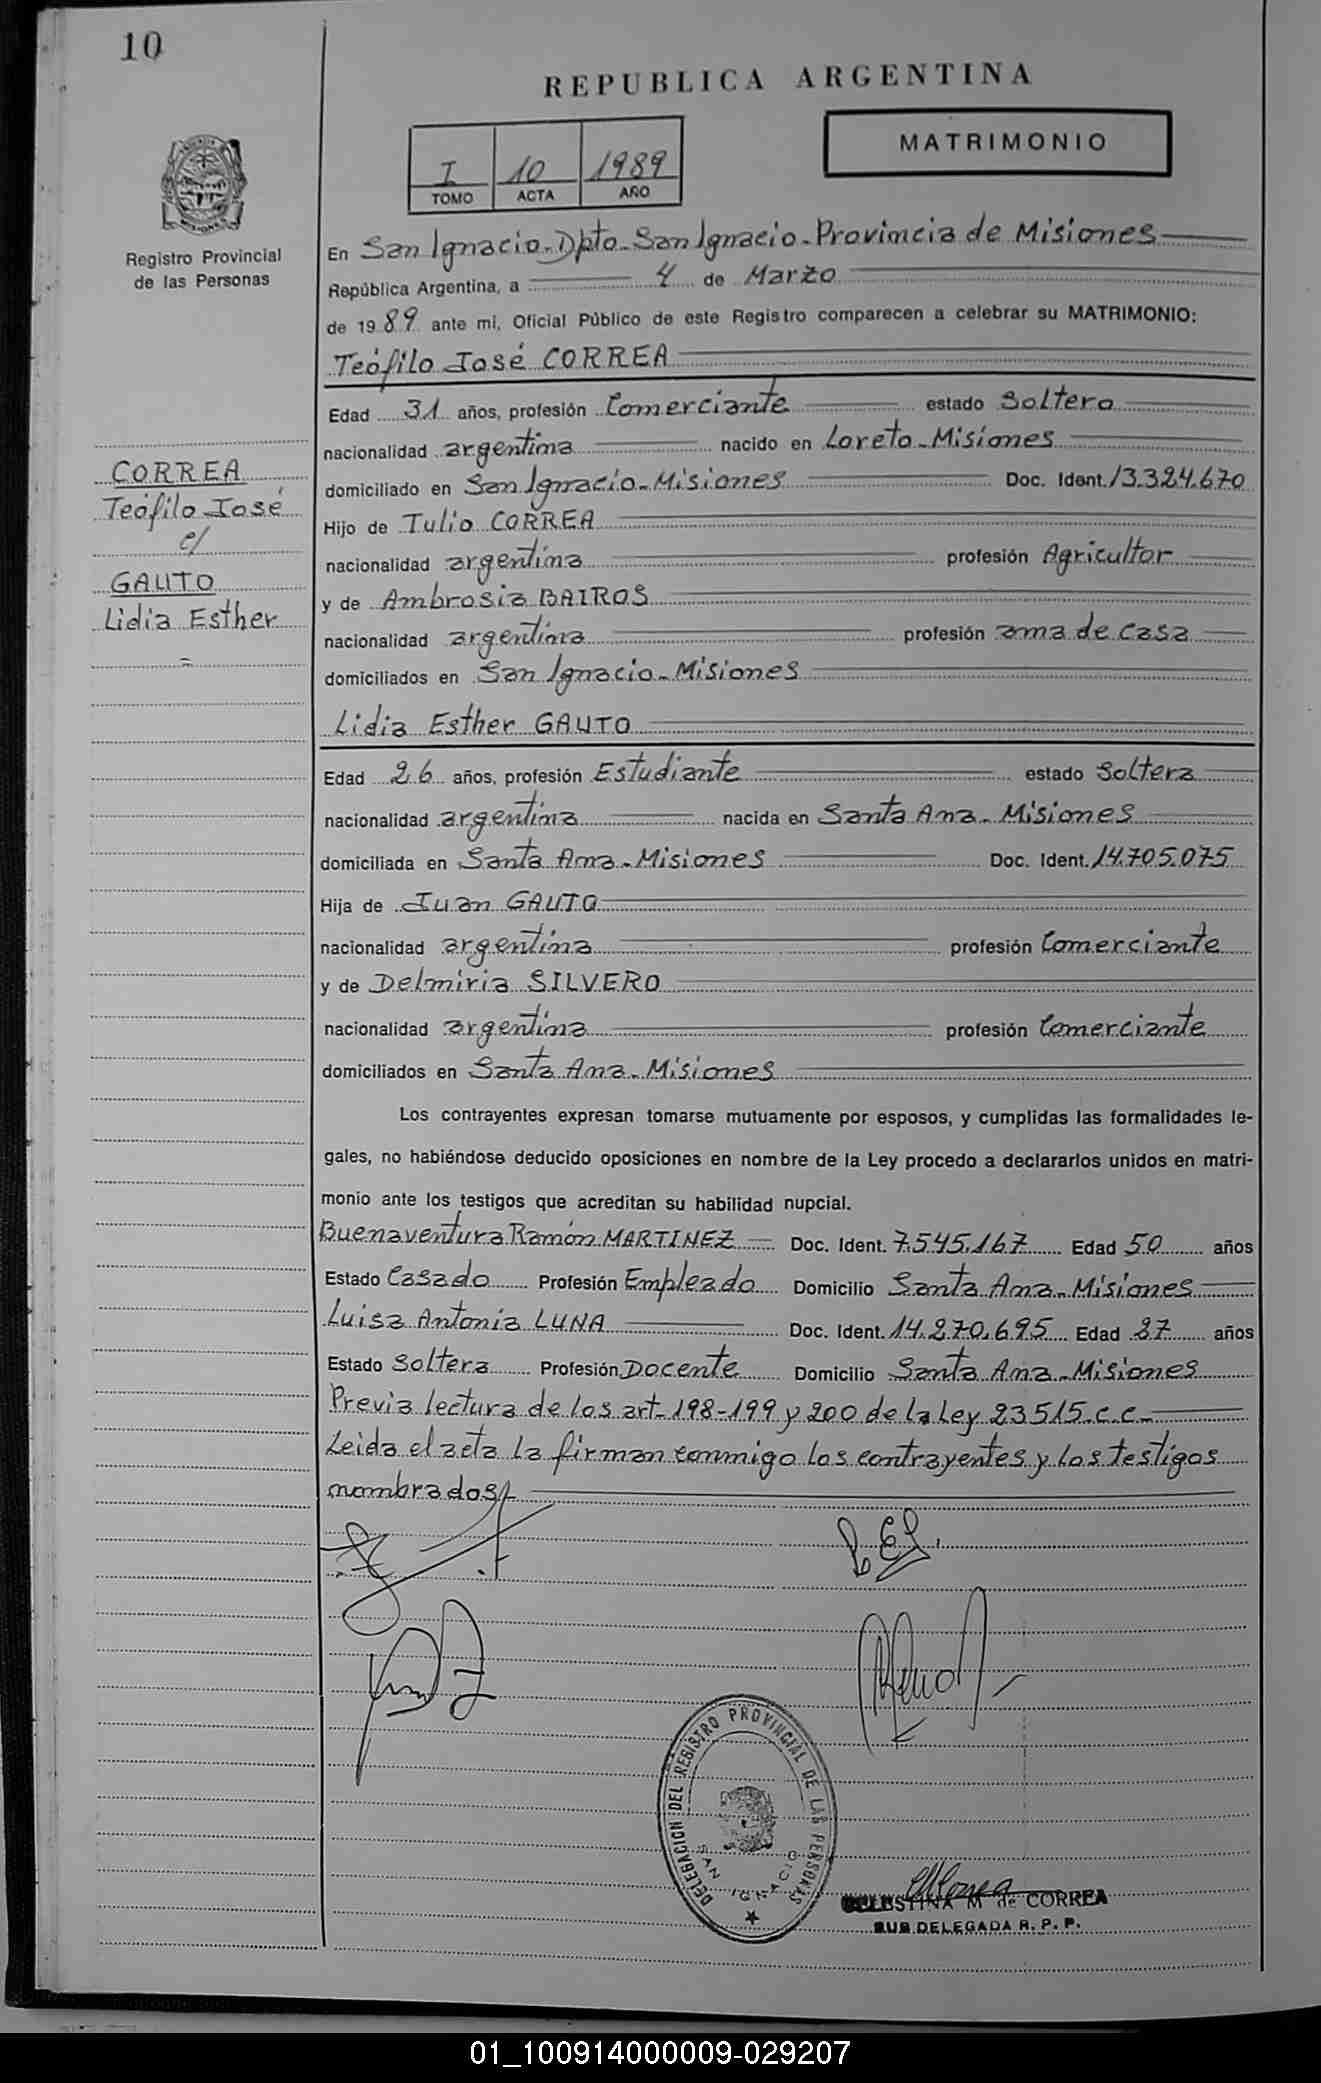 10
REPUBLICA ARGENTINA
MATRIMONIO
I 10 1989
TOMO ACTA AÑO
MISIONES
Registro Provincial
de las Personas
En San Ignacio - Dpto - San Ignacio - Provincia de Misiones
República Argentina, a 4 de Marzo
de 1989 ante mi, Oficial Público de este Registro comparecen a celebrar su MATRIMONIO:
Teófilo José CORREA
Edad 31 años, profesión Comerciante estado Soltero
nacionalidad argentina nacido en Loreto - Misiones
domiciliado en San Ignacio - Misiones Doc. Ident. 13.324.670
Hijo de Tulio CORREA
nacionalidad argentina profesión Agricultor
y de Ambrosia BAIROS
nacionalidad argentina profesión ama de casa
domiciliados en San Ignacio - Misiones
CORREA
Teófilo José
c/
GAUTO
Lidia Esther
Lidia Esther GAUTO
Edad 26 años, profesión Estudiante estado Soltera
nacionalidad argentina nacida en Santa Ana - Misiones
domiciliada en Santa Ana - Misiones Doc. Ident. 14.705.075
Hija de Juan GAUTO
nacionalidad argentina profesión Comerciante
y de Delmiria SILVERO
nacionalidad argentina profesión Comerciante
domiciliados en Santa Ana - Misiones
Los contrayentes expresan tomarse mutuamente por esposos, y cumplidas las formalidades le-
gales, no habiéndose deducido oposiciones en nombre de la Ley procedo a declararlos unidos en matri-
monio ante los testigos que acreditan su habilidad nupcial.
Buenaventura Ramón MARTINEZ Doc. Ident. 7.545.167 Edad 50 años
Estado Casado Profesión Empleado Domicilio Santa Ana - Misiones
Luisa Antonia LUNA Doc. Ident. 14.270.695 Edad 27 años
Estado Soltera Profesión Docente Domicilio Santa Ana - Misiones
Previa lectura de los art - 198-199 y 200 de la Ley 23515 - c.c -
Leida el acta la firman conmigo los contrayentes y los testigos
nombrados
DELEGACION DEL REGISTRO PROVINCIAL DE LAS PERSONAS
SAN IGNACIO
CELESTINA M de CORREA
SUB DELEGADA R. P. P.
01_100914000009-029207